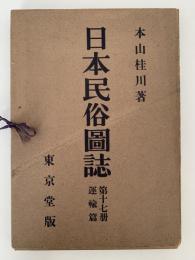 本山桂川著
日本民俗圖誌
第十七册
運輸篇
東京堂版